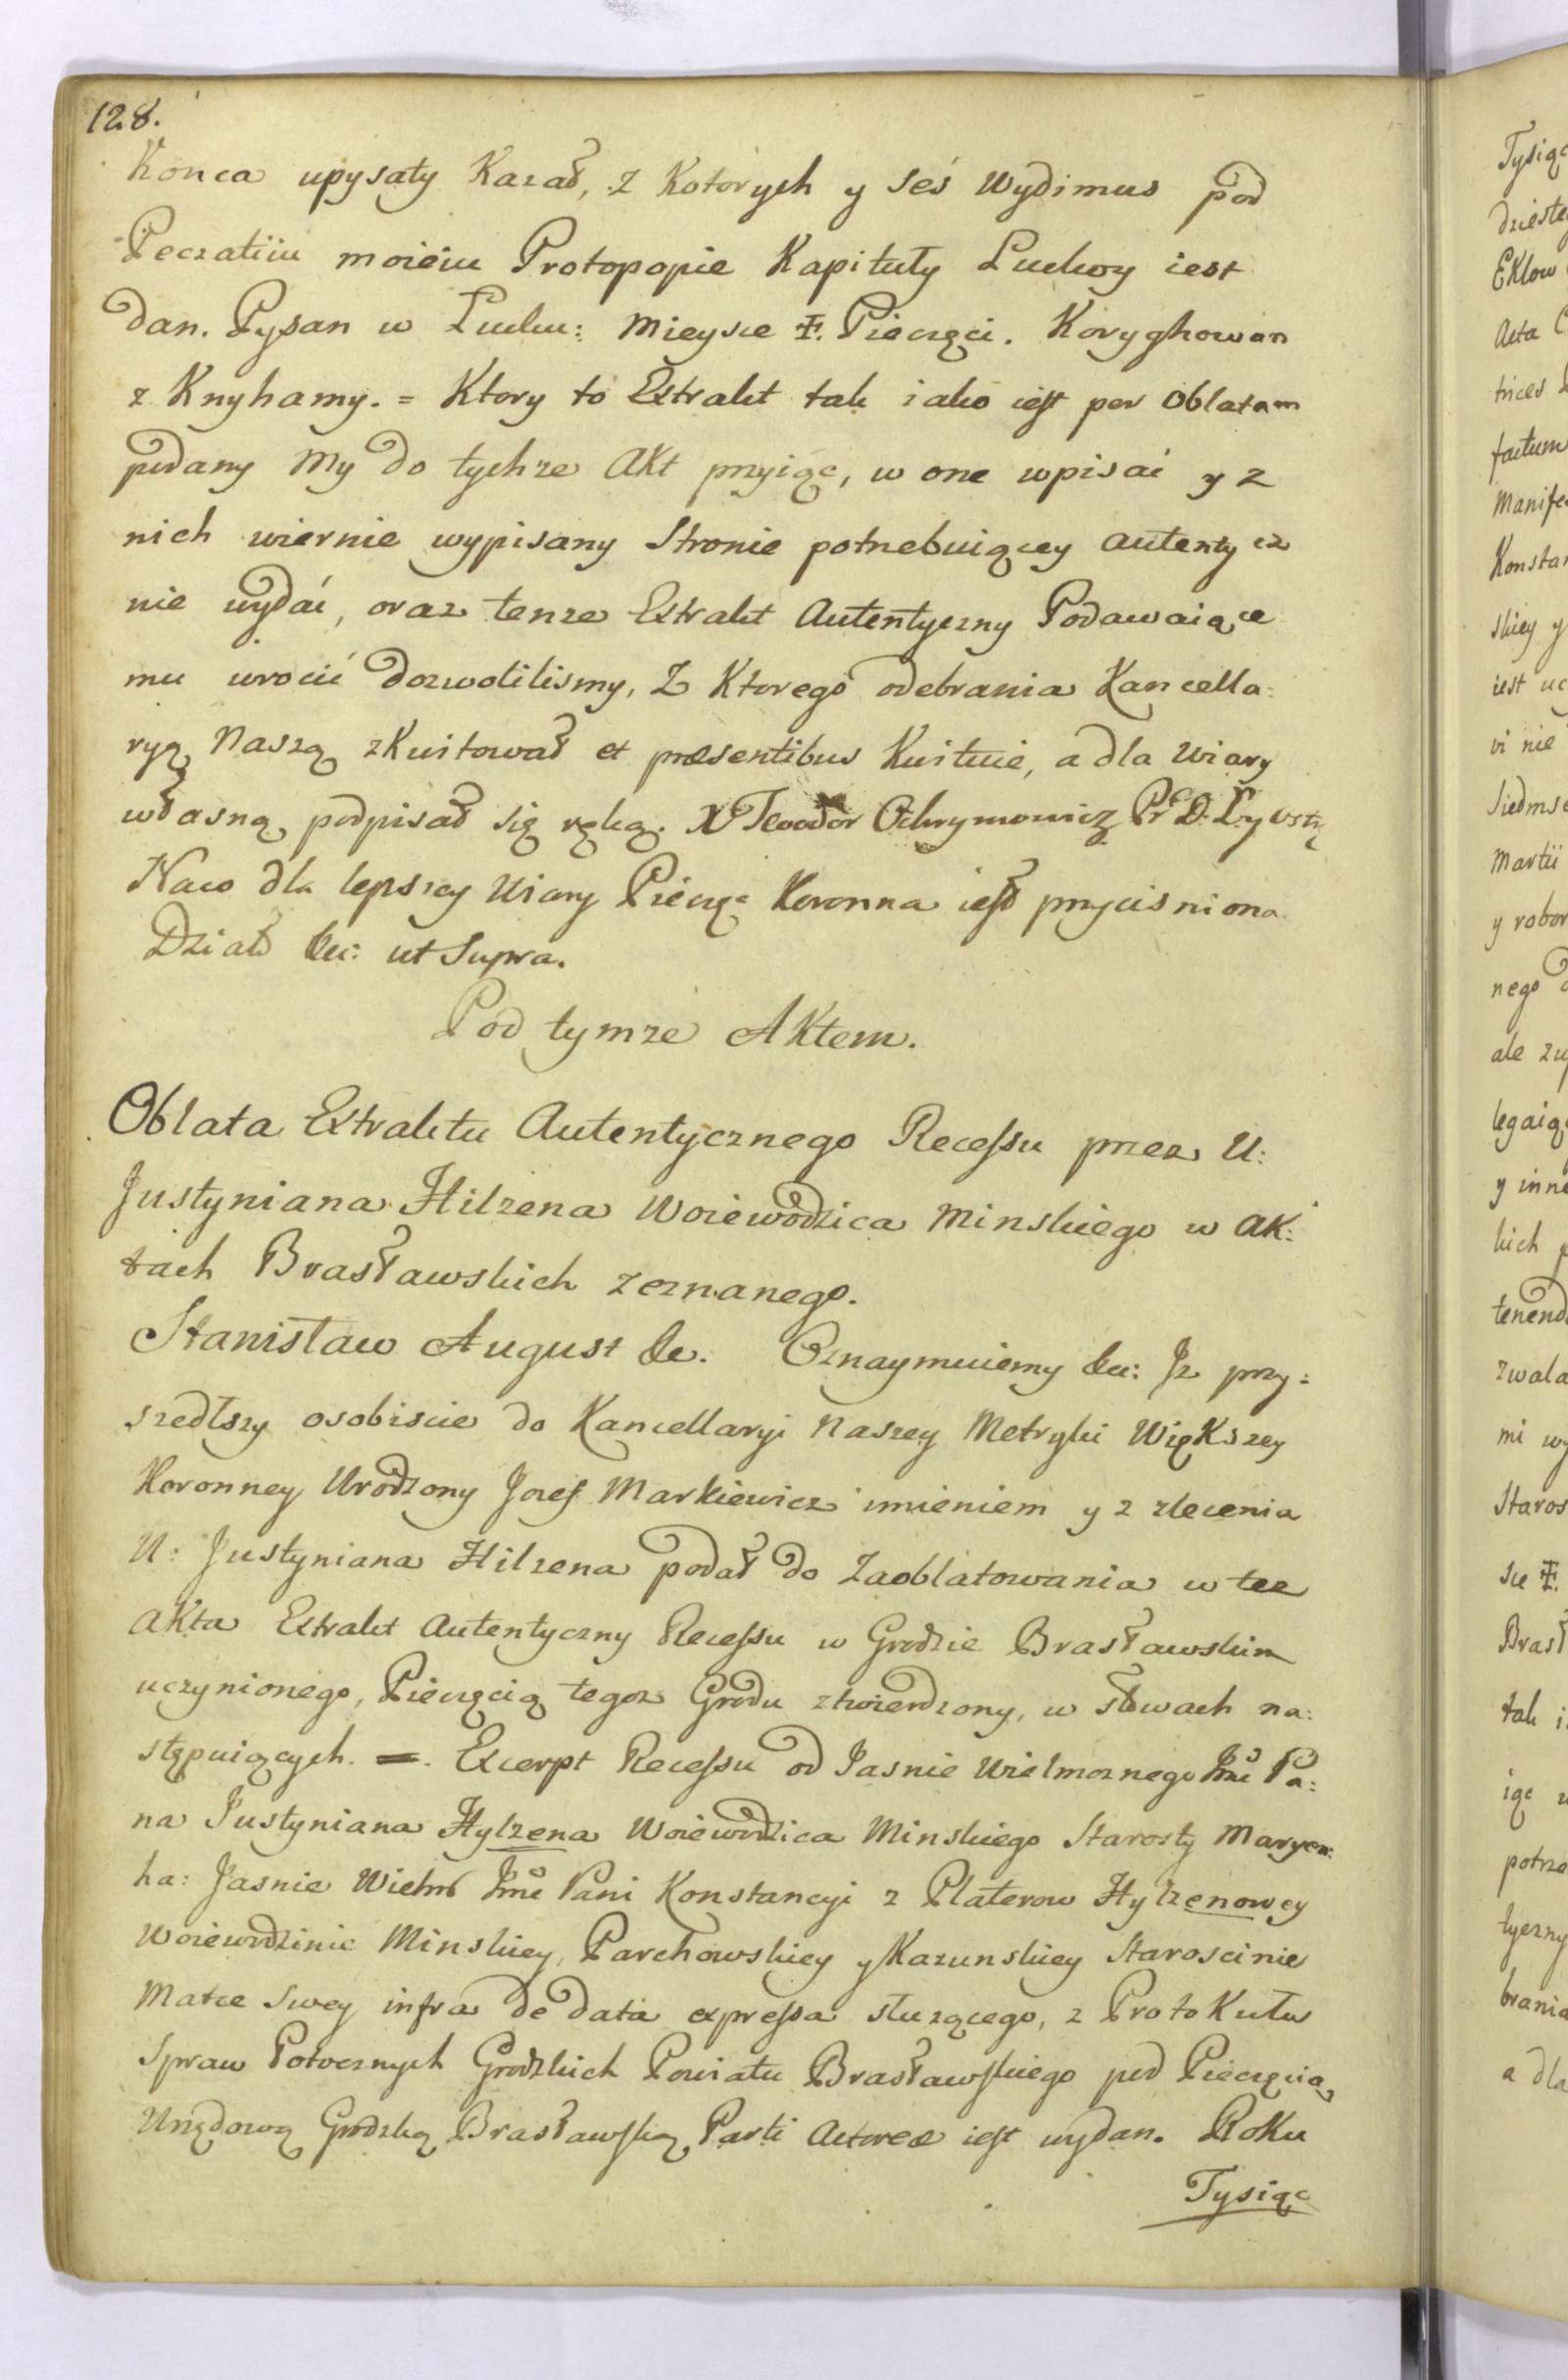 128.
Konca upysaty Kazał, z Kotorych y seś Wydimus pod
Peczatiiu moieiu Protopopie Kapituły Luckoy iest
dan. Pysan w Lucku: Mieysce Ŧ. Pieczęci. Koryghowan
z Knyhamy. = Ktory to Extrakt tak iako iest per Oblatam
podany My do tychze Akt przyiąc, w one wpisać y z
nich wiernie wypisany Stronie potrzebuiącey autentycz
nie wydać, oraz tenze Extrakt Autentyczny Podawaiące
mu wrocić dozwolilismy, Z Ktorego odebrania Kancella:
ryą Naszą zkwitował et præsentibus Kwituie, a dla Wiary
własną podpisał się ręką. X Teodor Ochrymowicz Pr D. Ł.y
Na co dla lepszey Wiary Pieczęc Koronna iest przycisniona
Dział &c: ut Supra.
Pod tymze Aktem.
Oblata Extraktu Autentycznego Recessu przez U:
Justyniana Hilzena Woiewodzica Minskiego w Ak:
tach Brasławskich zeznanego.
Stanisław August &c. Oznaymuiemy &c: Iz przy:
szedłszy osobiscie do Kancellaryi Naszey Metryki Większey
Koronney Urodzony Jozef Markiewicz imieniem y z zlecenia
U: Justyniana Hilzena podał do Zaoblatowania w tee
Akta Extrakt Autentyczny Recessu w Grodzie Brasławskim
uczynionego, Pieczęcią tegoz Grodu ztwierdzony, w słowach na:
stępuiących. =. Excerpt Recessu od Jasnie Wielmoznego Jmć Pa:
na Justyniana Hylzena Woiewodzica Minskiego Starosty Maryen:
ha: Jasnie Wielmo Jmć Pani Konstancyi z Platerow Hylzenowey
Woiewodzinie Minskiey, Parchowskiey y Kazunskiey Staroscinie
Matce Swey infra de data expressa słuzącego, z Protokułu
Spraw Potocznych Grodzkich Powiatu Brasławskiego pod Pieczęcią
Urzędową Grodzką Brasławską Parti Actoreæ iest wydan. Roku
Tysiąc